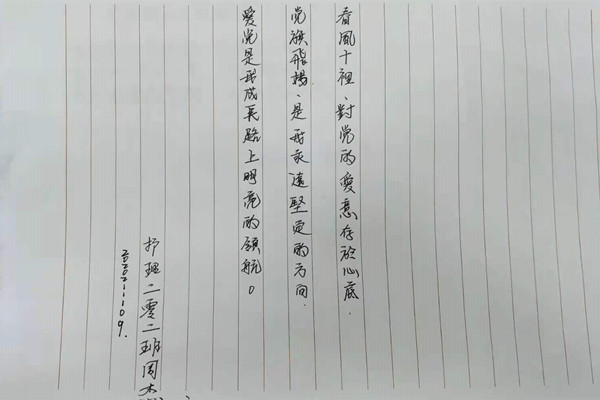 春風十裡、對党的愛意存於心底.
党旗飛揚、是我永遠堅定的方向.
愛党是我成長路上明亮的領航。
护理二零二班周